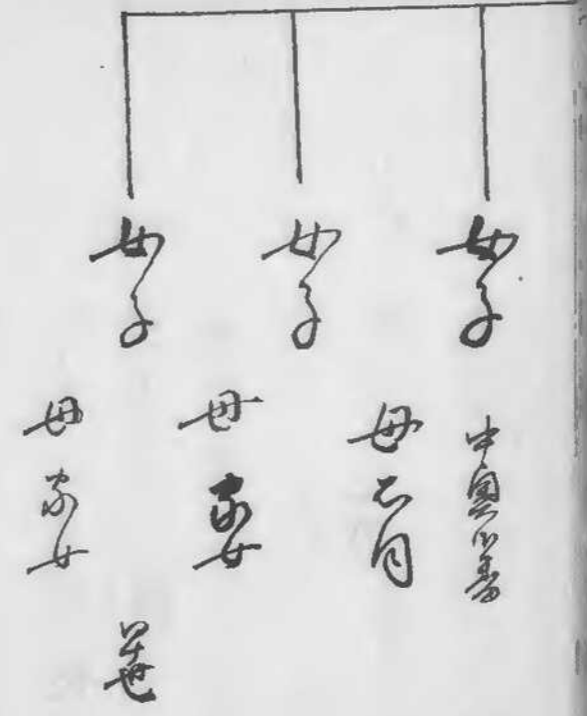 女子
中奥小姓
母同
女子
母家女
女子
母家女
早世